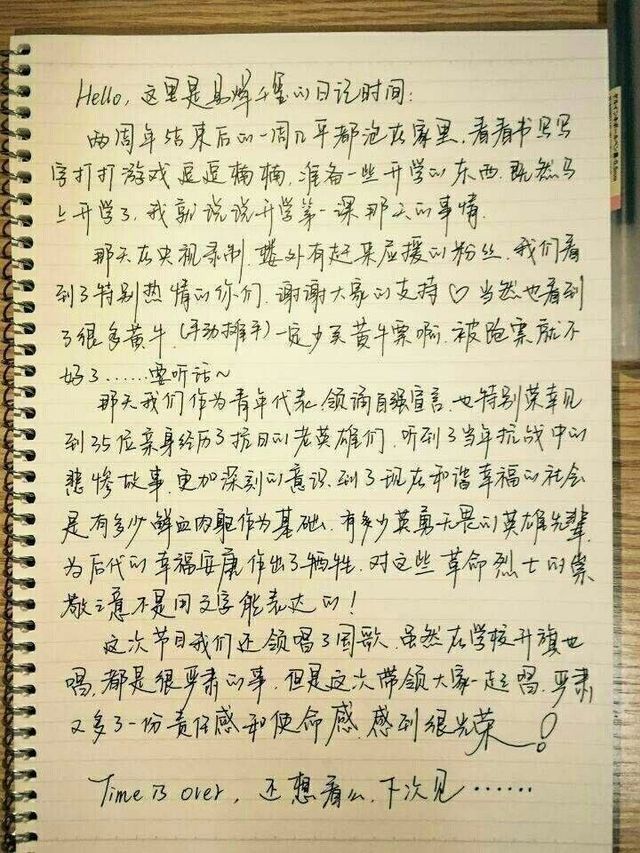 Hello, 这里是易烊千玺的日记时间:
两周年结束后的一周几乎都泡在家里, 看看书写写
字打打游戏逗逗楠楠, 准备一些开学的东西. 既然马
上开学了, 我就说说开学第一课那天的事情.
那天在央视录制, 楼外有赶来应援的粉丝, 我们看
到了特别热情的你们, 谢谢大家的支持♡当然也看到
了很多黄牛. (手动摊手) 一定少买黄牛票啊, 被跑票就不
好了……要听话~
那天我们作为青年代表, 领诵自强宣言, 也特别荣幸见
到35位亲身经历了抗日的老英雄们, 听到了当年抗战中的
悲惨故事, 更加深刻的意识到了现在和谐幸福的社会
是有多少鲜血肉躯作为基础, 有多少英勇无畏的英雄先辈,
为后代的幸福安康作出了牺牲. 对这些革命烈士的崇
敬之意不是用文字能表达的!
这次节目我们还领唱了国歌, 虽然在学校升旗也
唱, 都是很严肃的事, 但是这次带领大家一起唱, 严肃
又多了一份责任感和使命感, 感到很光荣!
Time is over, 还想看么, 下次见……